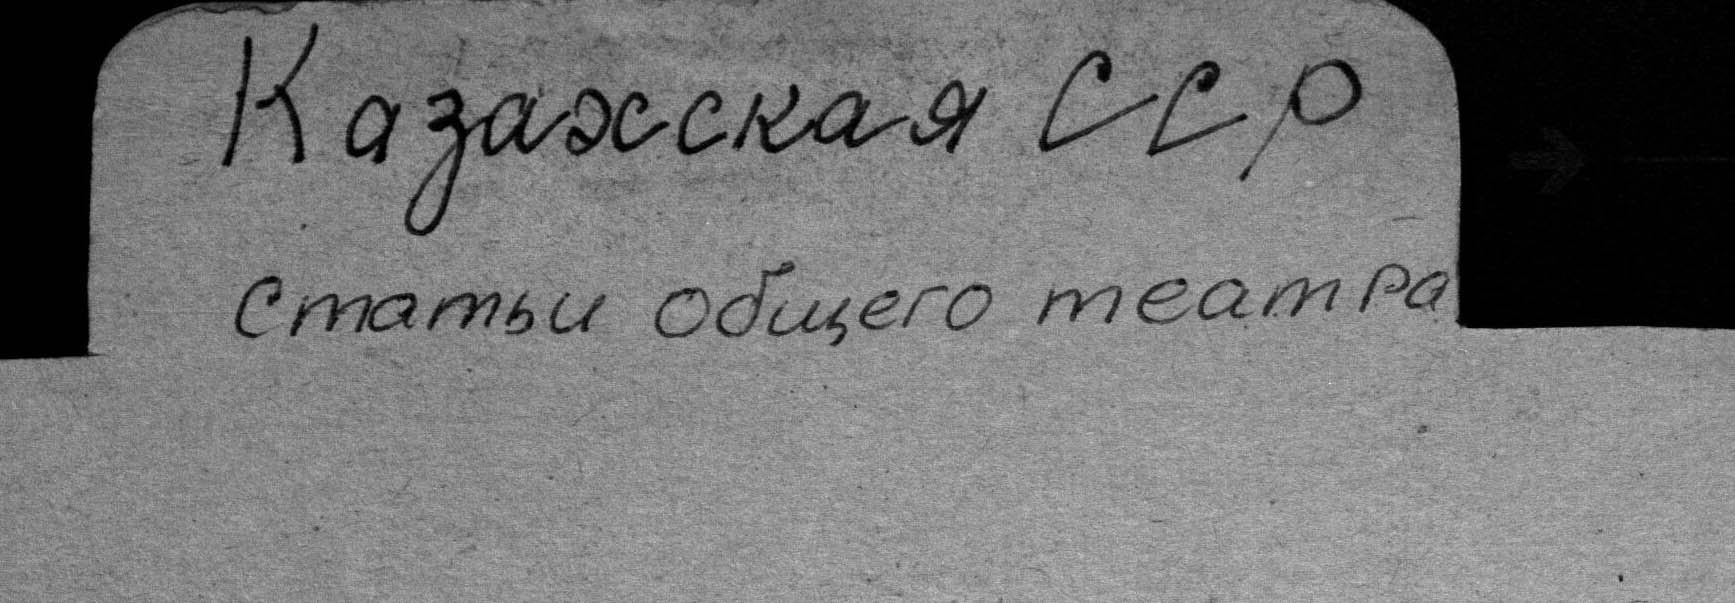 Казахская ССР
статьи общего театра